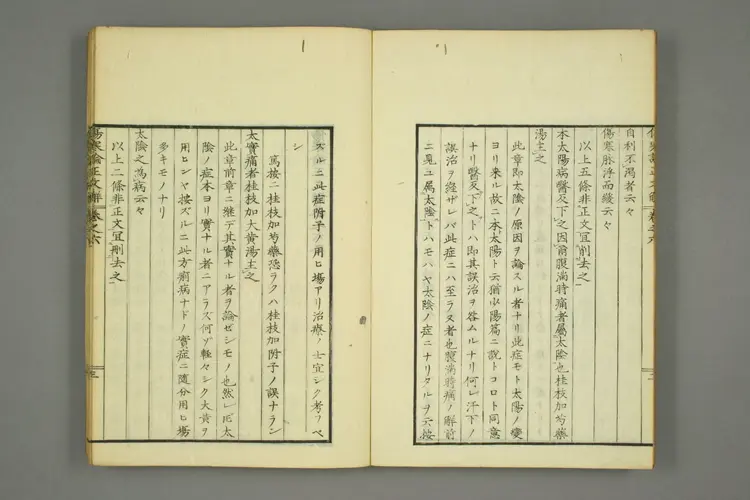 自利不渇者云々
傷寒脉浮而緩云々
以上五條非正文宜削去之
本太陽病醫反下之因爾腹滿時痛者屬太陰也桂枝加芍藥
湯主之
此章即太陰ノ原因ヲ論スル者ナリ此症モト太陽ノ變
ヨリ来ル故ニ本太陽ト云猶少陽篇ニ説トコロト同意
ナリ醫反下之トハ即其誤治ヲ咎ムルナリ何レ汗下ノ
誤治ヲ経ザレバ此症ニハ至ラヌ者也腹滿時痛ノ解前
ニ見ユ屬太陰トハモハヤ太陰ノ症ニナリタルヲ云按
ズルニ此症附子ノ用ヒ場アリ治療ノ士宜シク考フベ
シ
篤按ニ桂枝加芍藥恐ラクハ桂枝加附子ノ誤ナラン
太實痛者桂枝加大黄湯主之
此章前章ニ継デ其實ナル者ヲ論ゼシモノ也然レ𪜈太
陰ノ症本ヨリ實ナル者ニアラズ何ゾ軽々シク大黄ヲ
用ヒンヤ按ズルニ此方痢病ナドノ實症ニ随分用ヒ場
多キモノナリ
太陰之為病云々
以上二條非正文宜刪去之
傷寒論正文解 巻之六